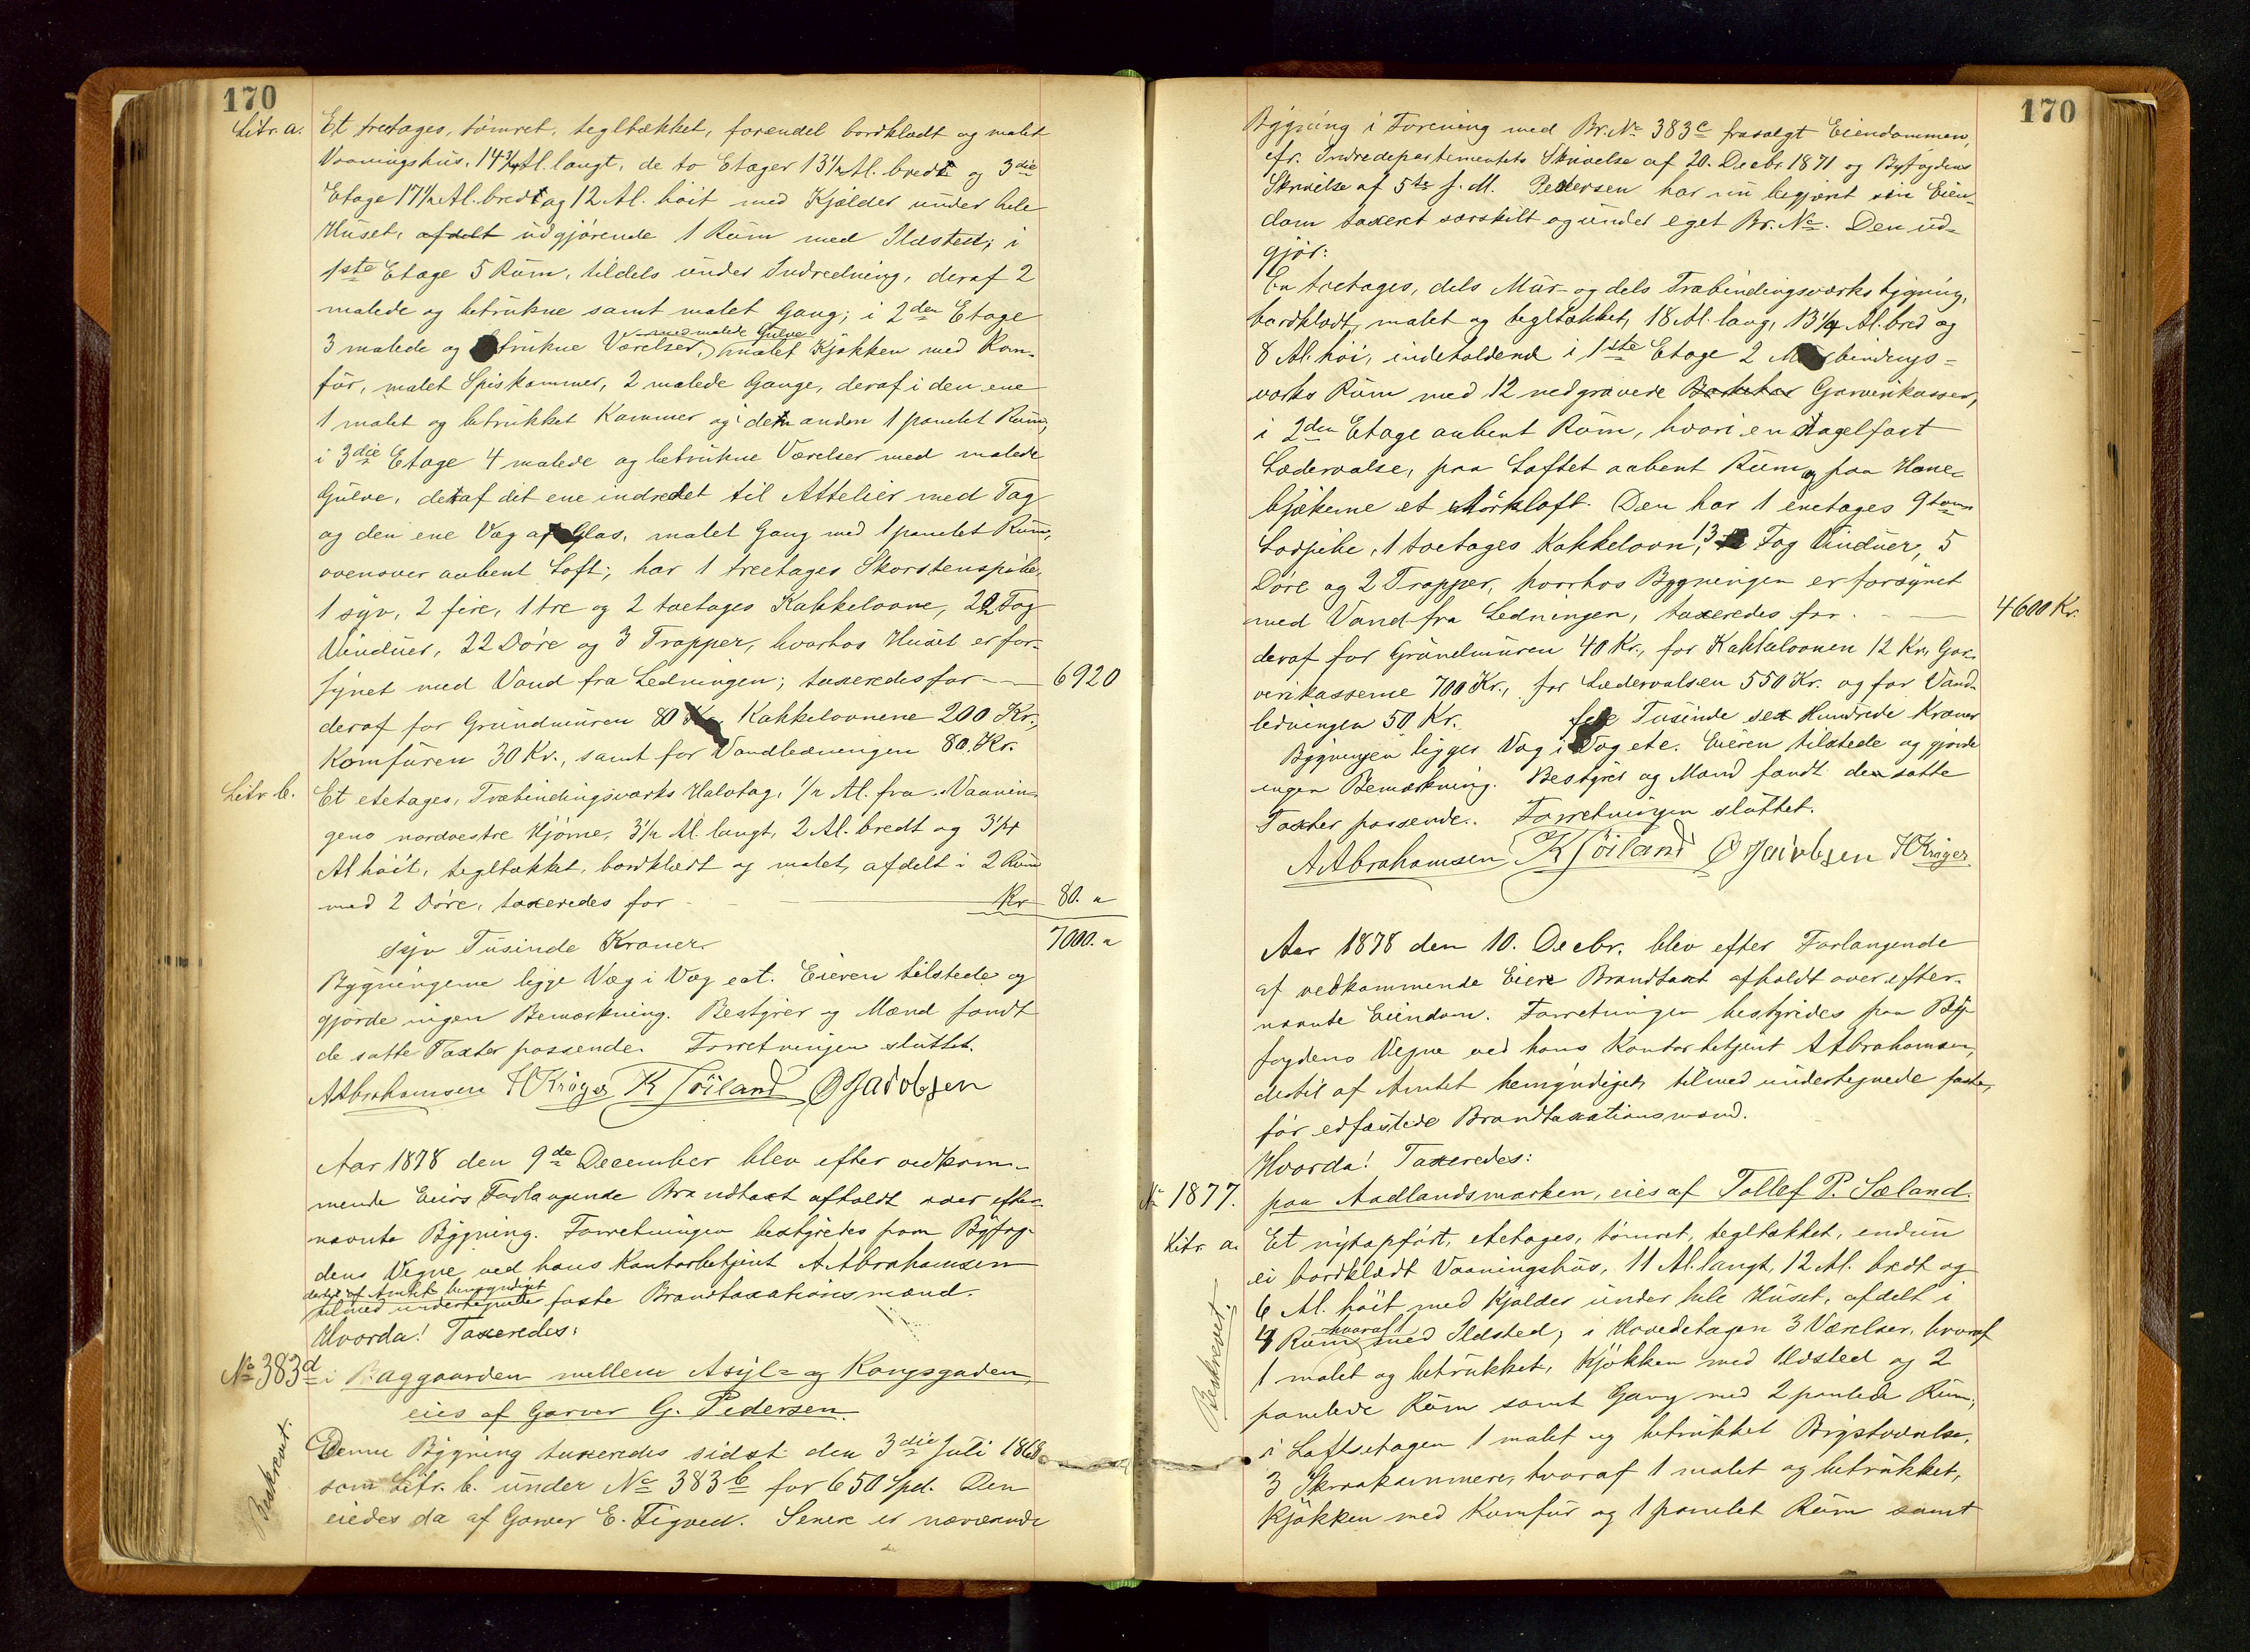 170
Litr. a. Et treetages, tømret, tegltækket, forendel bordklædt og malet
Vaaningshus, 14 3/4 Al. langt, de to Etager 13 1/2 Al. bredt og 3die
Etage 17 1/2 Al. bredt og 12 Al. høit med Kjælder under hele
Huset, afdelt udgjørende 1 Rum med Ildsted; i
1ste Etage 5 Rum, tildels under Indredning, deraf 2
malede og betrukne samt malet Gang; i 2den Etage
3 malede og betrukne Værelser, med malede Gulve malet Kjøkken med Kom-
für, malet Spiskammer, 2 malede Gange, deraf i den ene
1 malet og betrukket Kammer og i den anden 1 panelet Rum,
i 3die Etage 4 malede og betrukne Værelser med malede
Gulve, deraf det ene indredet til Attelier med Tag
og den ene Væg af Glas, malet Gang med 1 panelet Rum,
ovenover aabent Loft; har 1 treetages Skorstenspibe,
1 syv, 2 fire, 1 tre og 2 toetages Kakkelovne, 22 Fag
Vinduer, 22 Døre og 3 Trapper, hvorhos Huset er for-
synet med Vand fra Ledningen; taxeredes for 6920
deraf for Grundmuren 80 Kr. Kakkelovnene 200 Kr.,
Komfuren 30 Kr., samt for Vandledningen 80. Kr.
Litr b. Et etetages, Træbindingsværks Halvtag, 1/2 Al. fra Vaanin-
gens nordvestre Hjørne, 3 1/2 Al. langt, 2 Al. bredt og 3 1/4
Al høit, tegltækket, bordklædt og malet, afdelt i 2 Rum
med 2 Døre, taxeredes for Kr 80. "
7000. "
syv Tusinde Kroner
Bygningerne ligge Væg i Væg ect. Eieren tilstede og
gjørde ingen Bemærkning. Bestyrer og Mænd fandt
de satte Taxter passende. Forretningen sluttet.
A Abrahamsen H Krøger K Töiland O Jacobsen
Aar 1878 den 9de December blev efter vedkom-
mende Eiers Forlangende Brandtaxt afholdt over efter-
nævnte Bygning. Forretningen bestyredes paa Byfog-
dens Vegne ved hans Kontorbetjent A Abrahamsen
dertil af Amtet bemyndiget
tilmed undertegnede faste Brandtaxationsmænd.
Hvorda! Taxeredes:
No 383d i Baggaarden mellem Asyl- og Kongsgaden,
eies af Garver G. Pedersen.
Beskrevet.
Denne Bygning taxeredes sidst den 3die Juli 1868
som Litr. b. under No 383b for 650 Spd. Den
eiedes da af Garver E. Tigved. Senere er nærværende
170
Bygning i Forening med Br. No 383c frasolgt Eiendommen,
cfr. Indredepartementets Skrivelse af 20. Decbr. 1871 og Byfogdens
Skrivelse af 5te f. M. Pedersen har nu begjært sin Eien-
dom taxeret særskilt og under eget Br. No. Den ud-
gjør:
En toetages, dels Mur- og dels Træbindingsværks bygning,
bordklædt, malet og tegltækket, 18 Al. lang, 13 1/4 Al. bred og
8 Al. høi, indeholdende i 1ste Etage 2 Murbindings-
værks Rum med 12 nedgravede Garverikasser,
i 2den Etage aabent Rum, hvori en nagelfast
Lædervalse, paa Loftet aabent Rum og paa Hane-
bjækerne et Mørkloft. Den har 1 enetages 9 toms
Ladpibe, 1 toetages Kakkelovn, 13 Fag Vinduer, 5
Døre og 2 Trapper, hvorhos Bygningen er forsynet
med Vand fra Ledningen, taxeredes for 4600 Kr.
deraf for Grundmuren 40 Kr., for Kakkelovnen 12 Kr., Gar-
verikasserne 700 Kr., for Lædervalsen 550 Kr. og for Vand-
ledningen 50 Kr. fire Tusinde sex Hundrede Kroner
Bygningen ligger Væg i Væg etc. Eieren tilstede og gjorde
ingen Bemærkning. Bestyrer og Mænd fandt den satte
Taxter passende. Forretningen sluttet.
A Abrahamsen K Töiland O Jacobsen H Krøger
Aar 1878 den 10. Decbr. blev efter Forlangende
af vedkommende Eiere Brandtaxt afholdt over efter-
nævnte Eiendom. Forretningen bestyredes paa By-
fogdens Vegne ved hans Kontorbetjent A Abrahamsen,
dertil af Amtet bemyndiget, tilmed undertegnede faste,
før edfæstede Brandtaxationsmænd.
Hvorda! Taxeredes:
No 1877. paa Aadlandsmarken, eies af Tollef P. Sæland.
Litr. a. Et nyopført, etetages, tømret, tegltækket, endnu
ei bordklædt Vaaningshus, 11 Al. langt, 12 Al. bredt og
6 Al. høit med Kjælder under hele Huset, afdelt i
4 Rum hvoraf 1 med Ildsted; i Hovedetagen 3 Værelser, hvoraf
Beskrevet.
1 malet og betrukket, Kjøkken med Ildsted og 2
panelede Rum samt Gang med 2 panlede Rum;
i Loftsetagen 1 malet og betrukket Brystværelse,
3 Skraakammere, hvoraf 1 malet og betrukket,
Kjøkken med Komfur og 1 panelet Rum samt